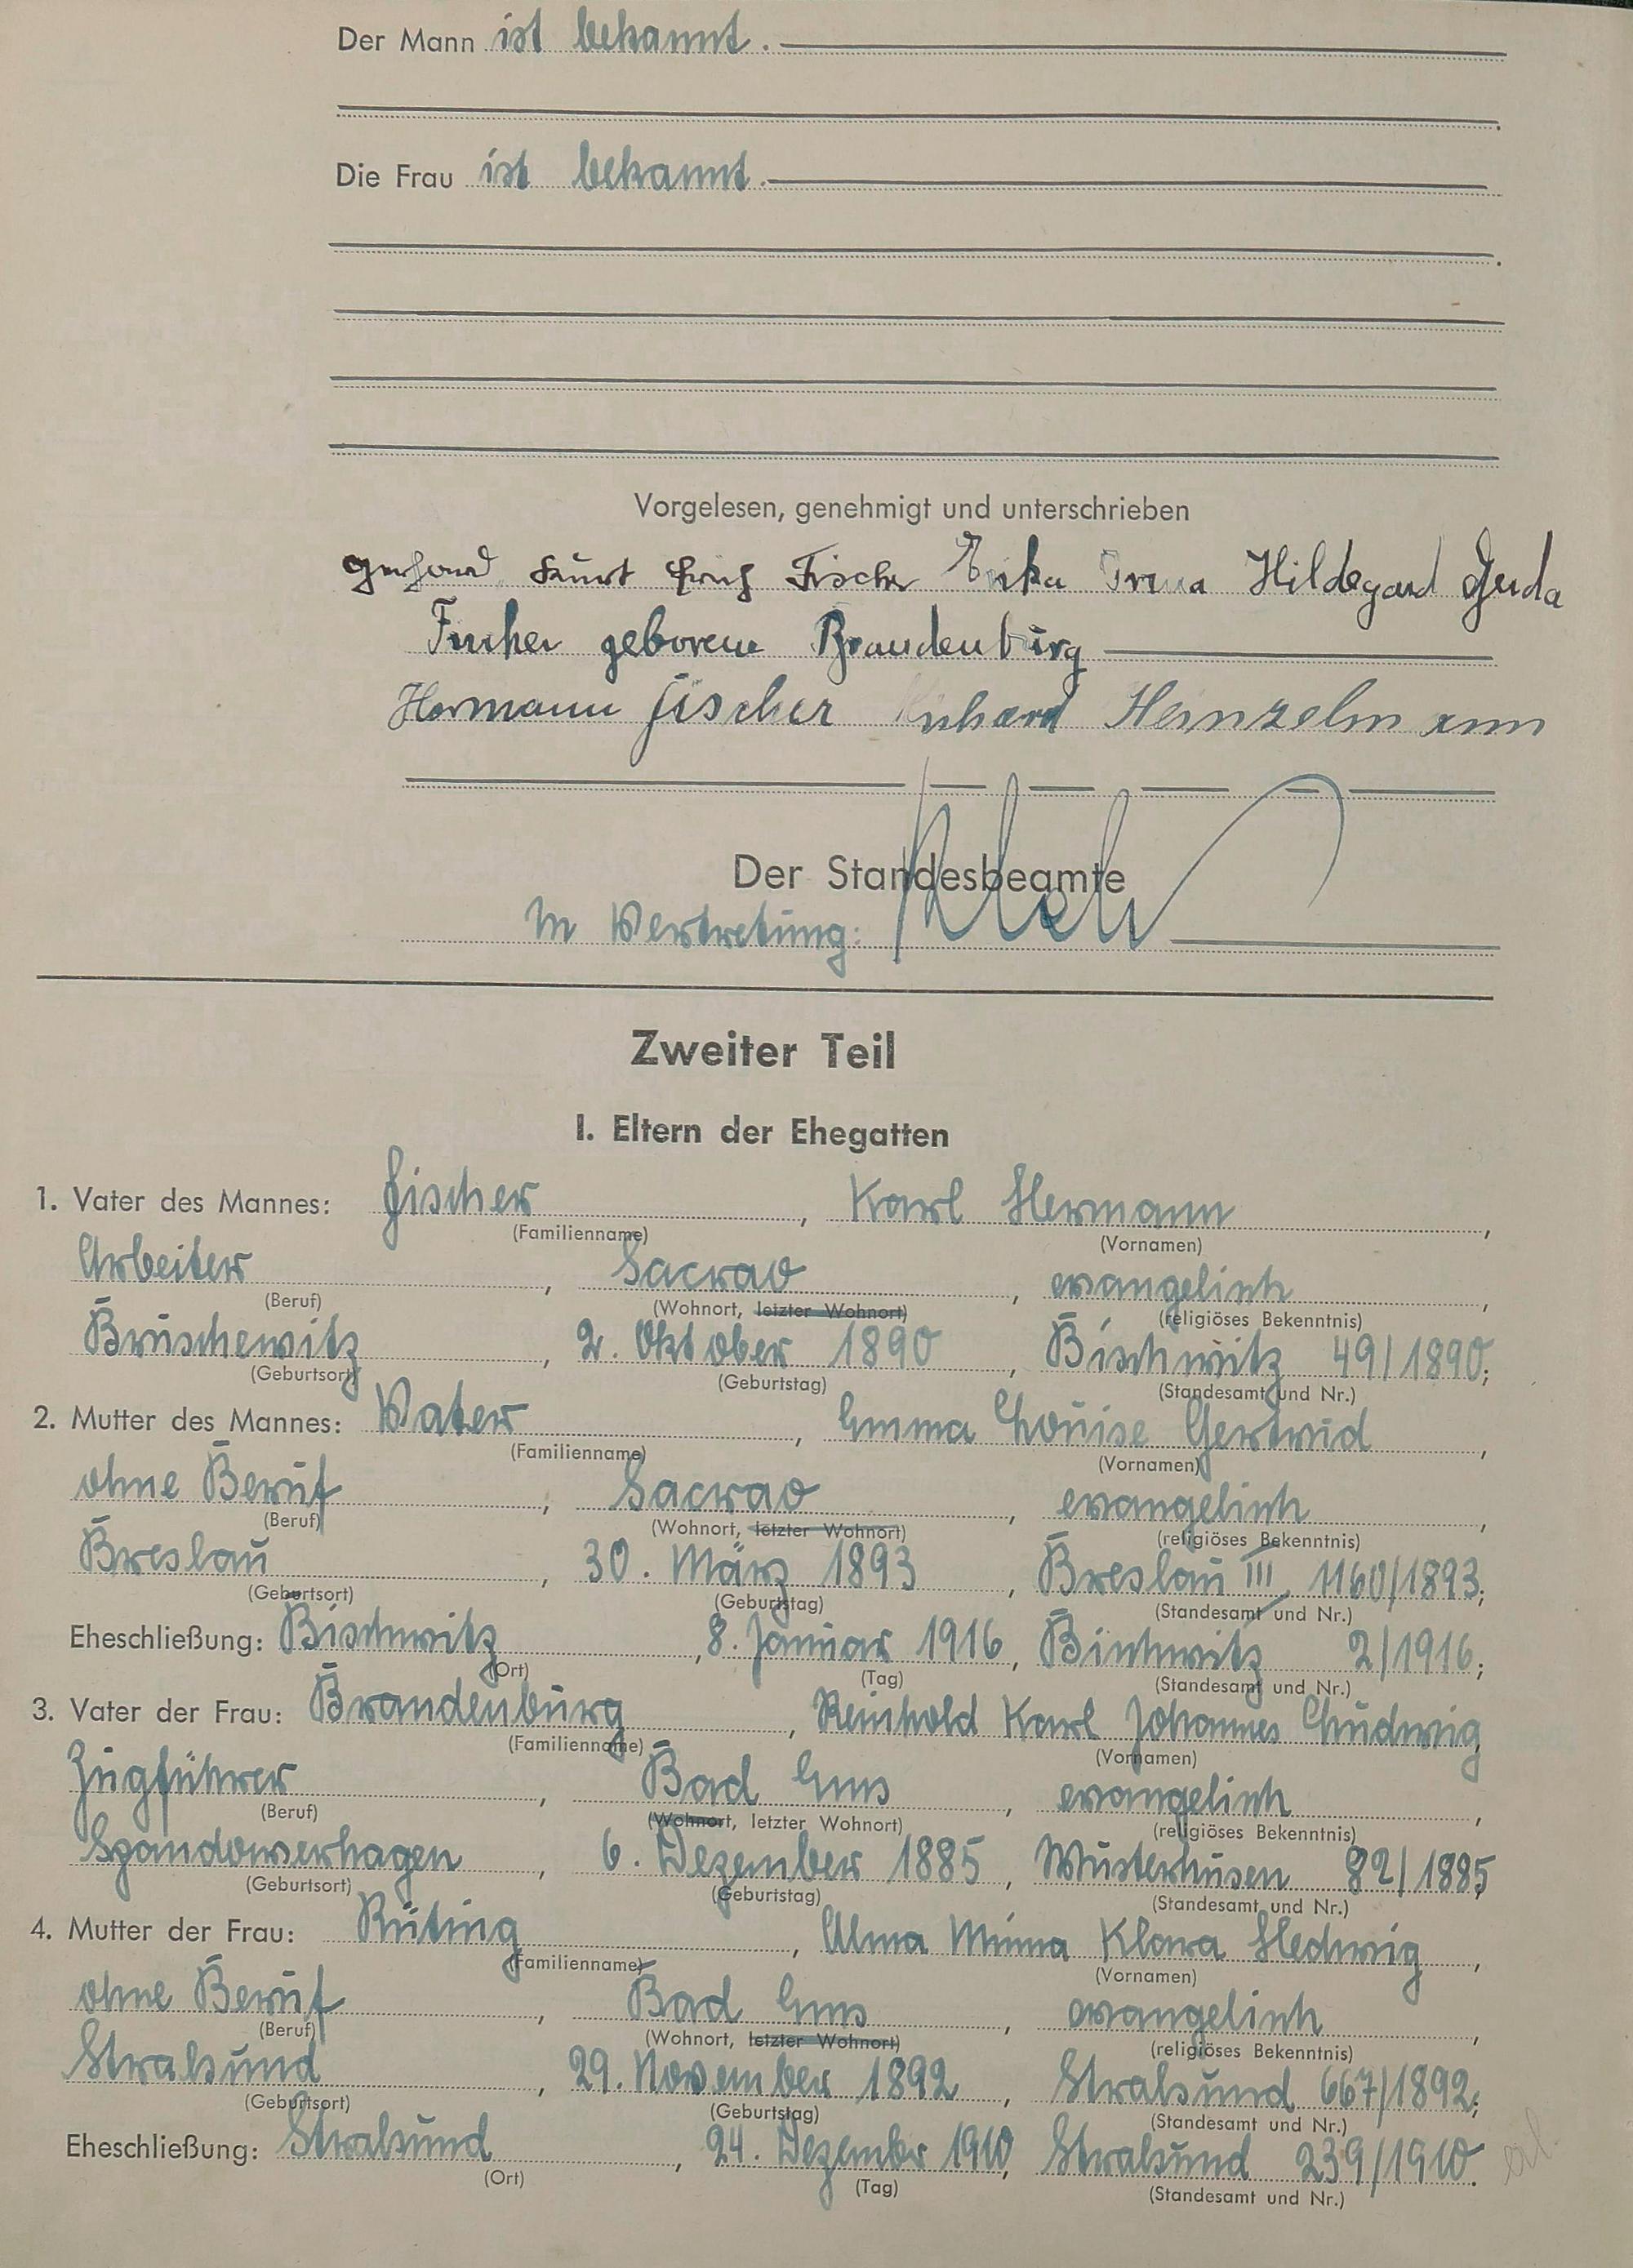 Der Mann ist bekannt.
Die Frau ist bekannt.
Vorgelesen, genehmigt und unterschrieben
Gerhard Kurt Erich Fischer Erika Irma Hildegard Gerda
Fischer geborene Brandenburg
Hermann Fischer Heinzelmann
Der Standesbeamte
In Vertretung:
Zweiter Teil
I. Eltern der Ehegatten
1. Vater des Mannes: Fischer, Karl Hermann,
(Familienname) (Vornamen)
Arbeiter, Sacrao, evangelisch,
(Beruf) (Wohnort, letzter Wohnort) (religiöses Bekenntnis)
Bruschewitz, 2. Oktober 1890, Bischwitz 49/1890;
(Geburtsort) (Geburtstag) (Standesamt und Nr.)
2. Mutter des Mannes: Vater, Emma Louise Gertrud,
(Familienname) (Vornamen)
ohne Beruf, Sacrao, evangelisch,
(Beruf) (Wohnort, letzter Wohnort) (religiöses Bekenntnis)
Breslau, 30. März 1893, Breslau III, 1160/1893;
(Geburtsort) (Geburtstag) (Standesamt und Nr.)
Eheschließung: Bischwitz, 8. Januar 1916, Bischwitz 2/1916;
(Ort) (Tag) (Standesamt und Nr.)
3. Vater der Frau: Brandenburg, Reinhold Karl Johannes Ludwig
(Familienname) (Vornamen)
Zugführer, Bad Ems, evangelisch,
(Beruf) (Wohnort, letzter Wohnort) (religiöses Bekenntnis)
Spandowerhagen, 6. Dezember 1885, Wusterhusen 82/1885
(Geburtsort) (Geburtstag) (Standesamt und Nr.)
4. Mutter der Frau: Rüting, Alma Minna Klara Hedwig,
(Familienname) (Vornamen)
ohne Beruf, Bad Ems, evangelisch,
(Beruf) (Wohnort, letzter Wohnort) (religiöses Bekenntnis)
Stralsund, 29. November 1892, Stralsund 667/1892;
(Geburtsort) (Geburtstag) (Standesamt und Nr.)
Eheschließung: Stralsund, 24. Dezember 1910, Stralsund 239/1910.
(Ort) (Tag) (Standesamt und Nr.)